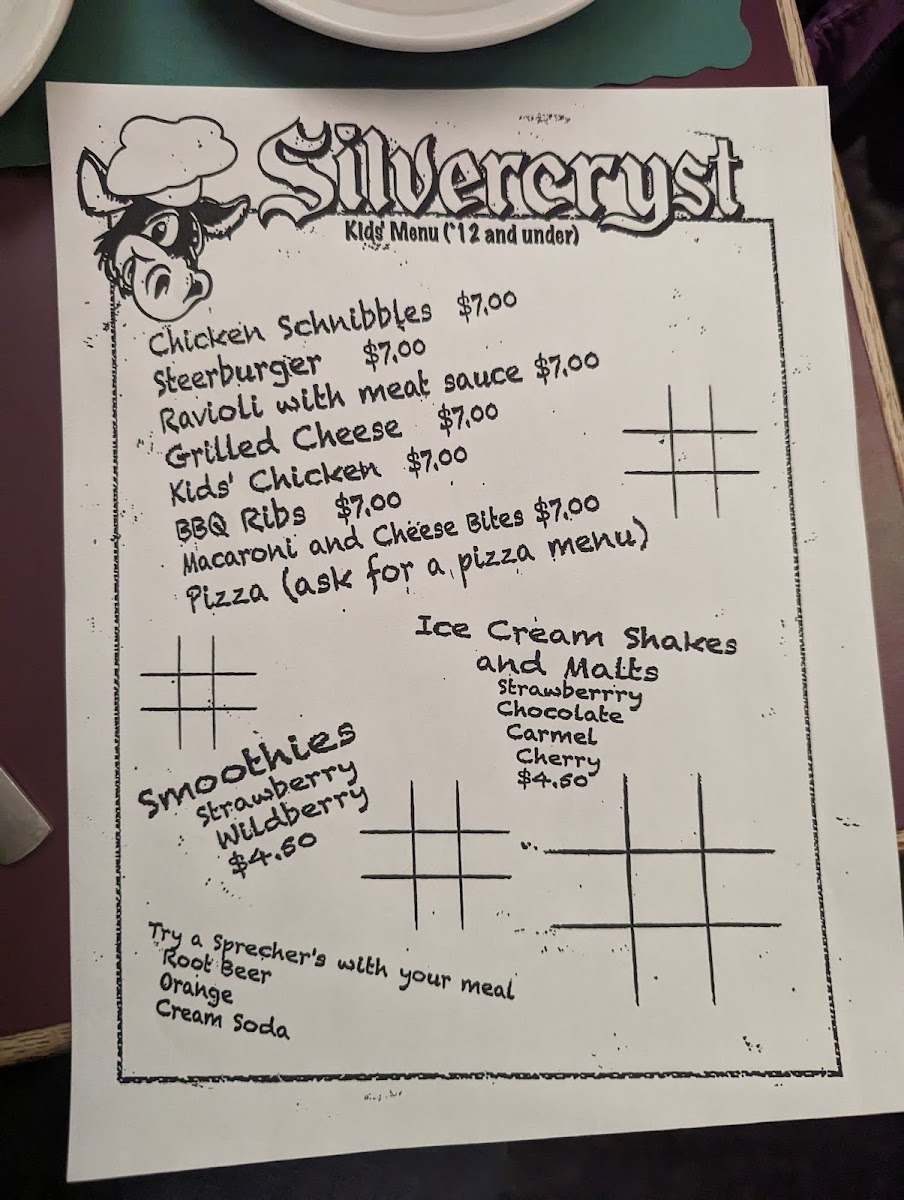 Silvercryst
Kids' Menu (*12 and under)
Chicken Schnibbles $7.00
Steerburger $7.00
Ravioli with meat sauce $7.00
Grilled Cheese $7.00
Kids' Chicken $7.00
BBQ Ribs $7.00
Macaroni and Cheese Bites $7.00
Pizza (ask for a pizza menu)
Ice Cream Shakes
and Malts
Strawberrry
Chocolate
Carmel
Cherry
$4.50
Smoothies
Strawberry
Wildberry
$4.50
Try a Sprecher's with your meal
Root Beer
Orange
Cream Soda